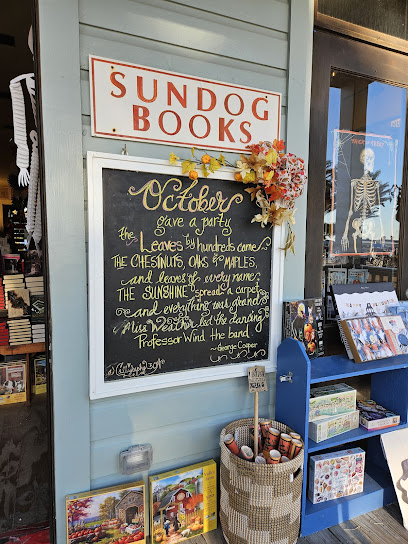 SUNDOG
BOOKS
October
gave a party
the Leaves by hundreds came
THE CHESTNUTS, OAKS & MAPLES,
and leaves of every name
THE SUNSHINE spread a carpet
and everything was grand,
Miss Weather led the dancing
Professor Wind the band
~George Cooper